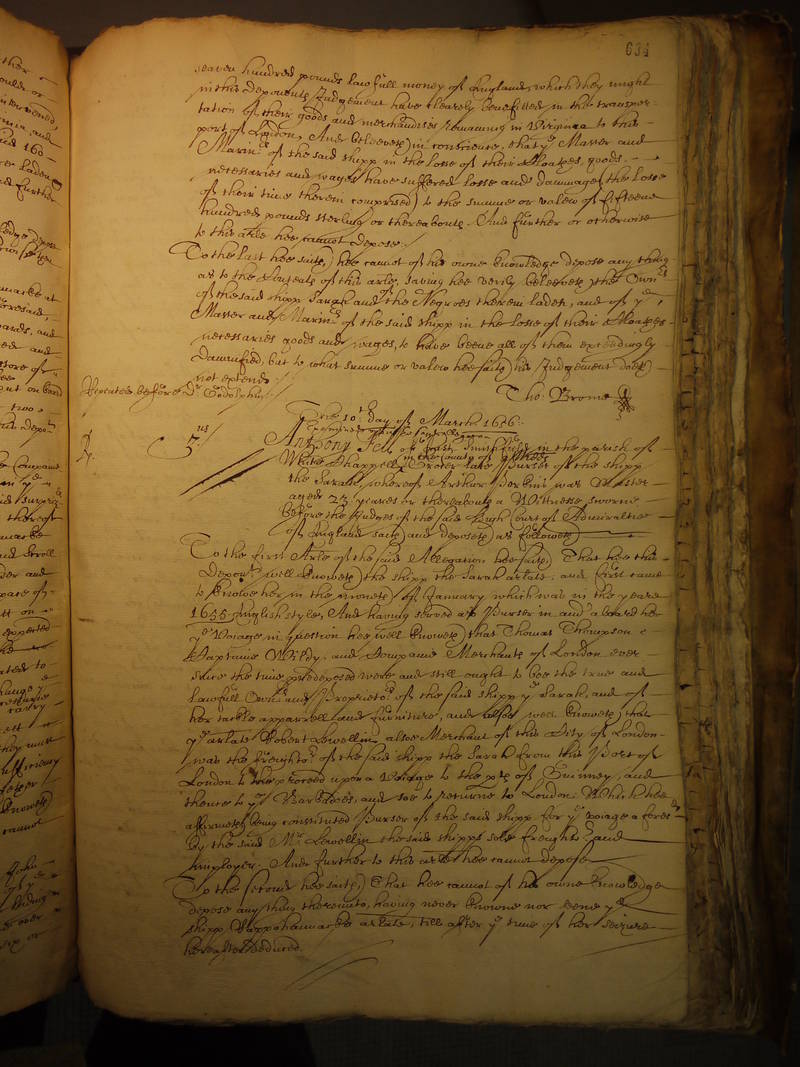 634
seaven hundred pounds lawfull money of England, which they might
in this deponents Judgement have clearely benefitted in the transpor-
tation of their goods and merchandizes remaining in Virginea to this
port of London, And beleeveth in conscience, that ye Master and
Marinrs of the said shipp in the losse of their cloathes, goods
necessaries and wages have suffered losse and dammage (the losse
of their time therein comprised) to the summe or valew of fifteene
hundred pounds sterling or thereabouts. And further or otherwise
to this arle hee cannot depose./
To the last hee saith, hee cannot of his owne knowledge depose any thing
as to the Contents of this arle, saving hee verily beleeveth the Ownrs
of the said shipp Sarah and the Negroes therein laden, and of ye
Master and Marinrs of the said shipp in the losse of their cloathes
necessaries goods and wages, to have beene all of them exceedingly
damnified, but to what summe or valew hee saith his Judgement doeth
not extend./
Repeated before Dr Godolphin./
Tho: Brome
The 10th day of March 1656:
Examined upon the said allegation
3us
Anthony Fen of East Smithfield in the parish of
in the County of Middx
White Chappell Grocer late Purser of the shipp
the Sarah, whereof Arthur Perkins was Master
aged 23 yeares or thereabouts a Witnesse sworne
before the Judges of the said High Court of Admiraltie
of England saith and deposeth as followeth
To the first Arle of the said Allegation hee saith, That hee this
Deponent well knoweth the shipp the Sarah arlate, and first came
to knowe her in the moneth of January which was in the yeare
1655 English style, And having served as Purser in and aboard her
ye Voiage in question hee well knoweth that Thomas Thompson
Captaine Wildy, and Company Merchants of London ever
since the time predeposed were and still ought to bee the true and
lawfull Ownrs and Proprietors of the said shipp ye Sarah, and of
her tackle apparrell and furniture, and alsoe well knoweth that
ye arlate Robert Lewellin alsoe Merchant of this City of London
was the freightor of the said shipp the Sarah from this Port of
London to proceed upon a Voiage to the pts of Guinney, and
thence to ye Barbados, and soe to returne to London. Which hee
affirmeth being constituted Purser of the said shipp for ye voiage aforesd
by the said Mr Lewellin the said shipps sole freighter and
Imployer. And further to this arle hee cannot depose
To the second hee saith, That hee cannot of his owne knowledge
depose any thing thereunto, having never knowne nor seene ye
shipp Rappahannacke arlate, till after ye time of her seizure
hereafter deduced.